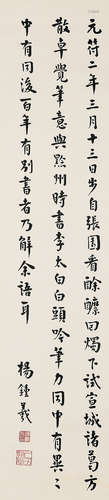 元符二年三月十三日步自張園看酴醾回燭下試宣城諸葛方
散卓覺筆意與黔州時書李太白白頭吟筆力同中有異異
中有同後百年有別書者乃解余語耳
楊鍾羲